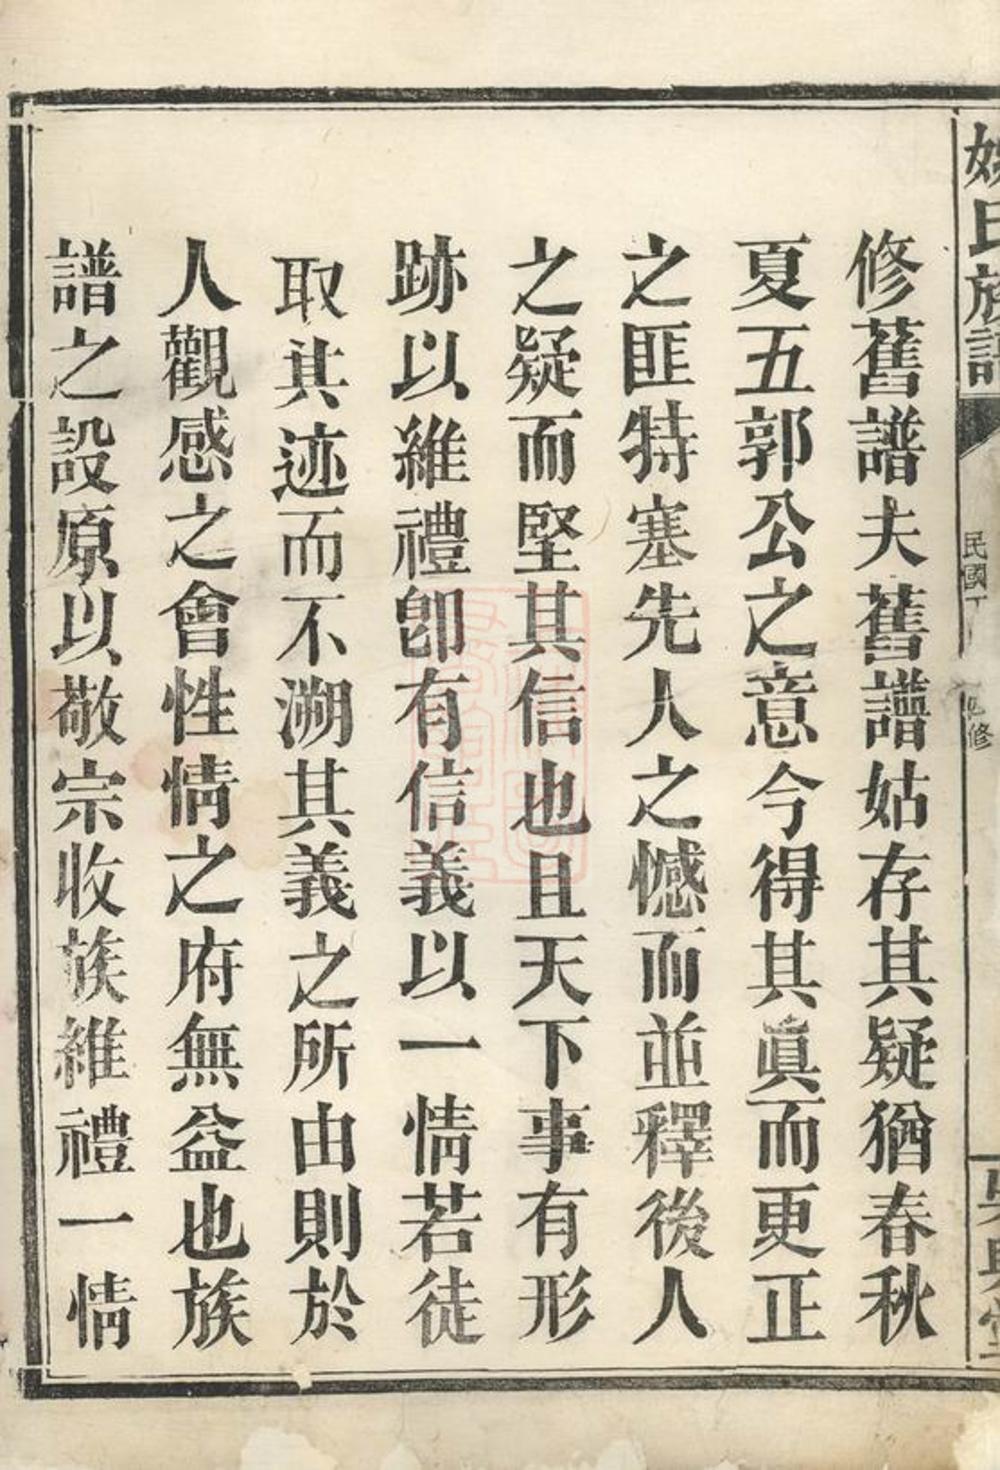 姚氏族譜
民國丁
四修
吳興堂
修舊譜夫舊譜姑存其疑猶春秋
夏五郭公之意今得其眞而更正
之匪特塞先人之憾而並釋後人
之疑而堅其信也且天下事有形
跡以維禮卽有信義以一情若徒
取其迹而不溯其義之所由則於
人觀感之會性情之府無益也族
譜之設原以敬宗收族維禮一情